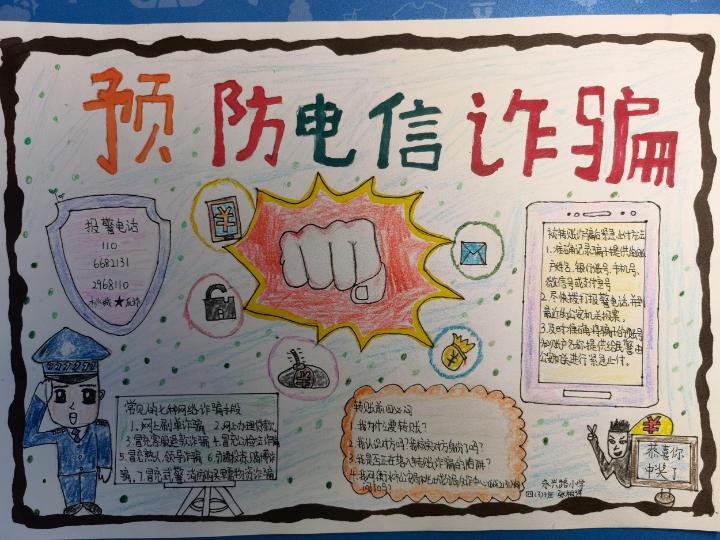 预防电信诈骗
报警电话
110
6682131
2968110
被转账诈骗后紧急止付方法
1.准确记录骗子提供的账
户姓名、银行账号、手机号、
微信号或支付宝号
2.尽快拨打报警电话,并到
最近的公安机关报案。
3.及时准确将骗子的账号
和账户名称提供给民警由
公安机关进行紧急止付。
常见的七种网络诈骗手段
1.网上刷单诈骗 2.网上办理贷款
3.冒充客服退款诈骗 4.冒充公检法诈骗
5.冒充熟人、领导诈骗 6.
骗,7.冒充武警、消防购买
转账前四必问
1.我为什么要转账?
2.我认识对方吗?我核实对方身份了吗?
3.我是否正在落入转账诈骗的陷阱?
4.我
问了吗?
恭喜你
中奖了
永兴路小学